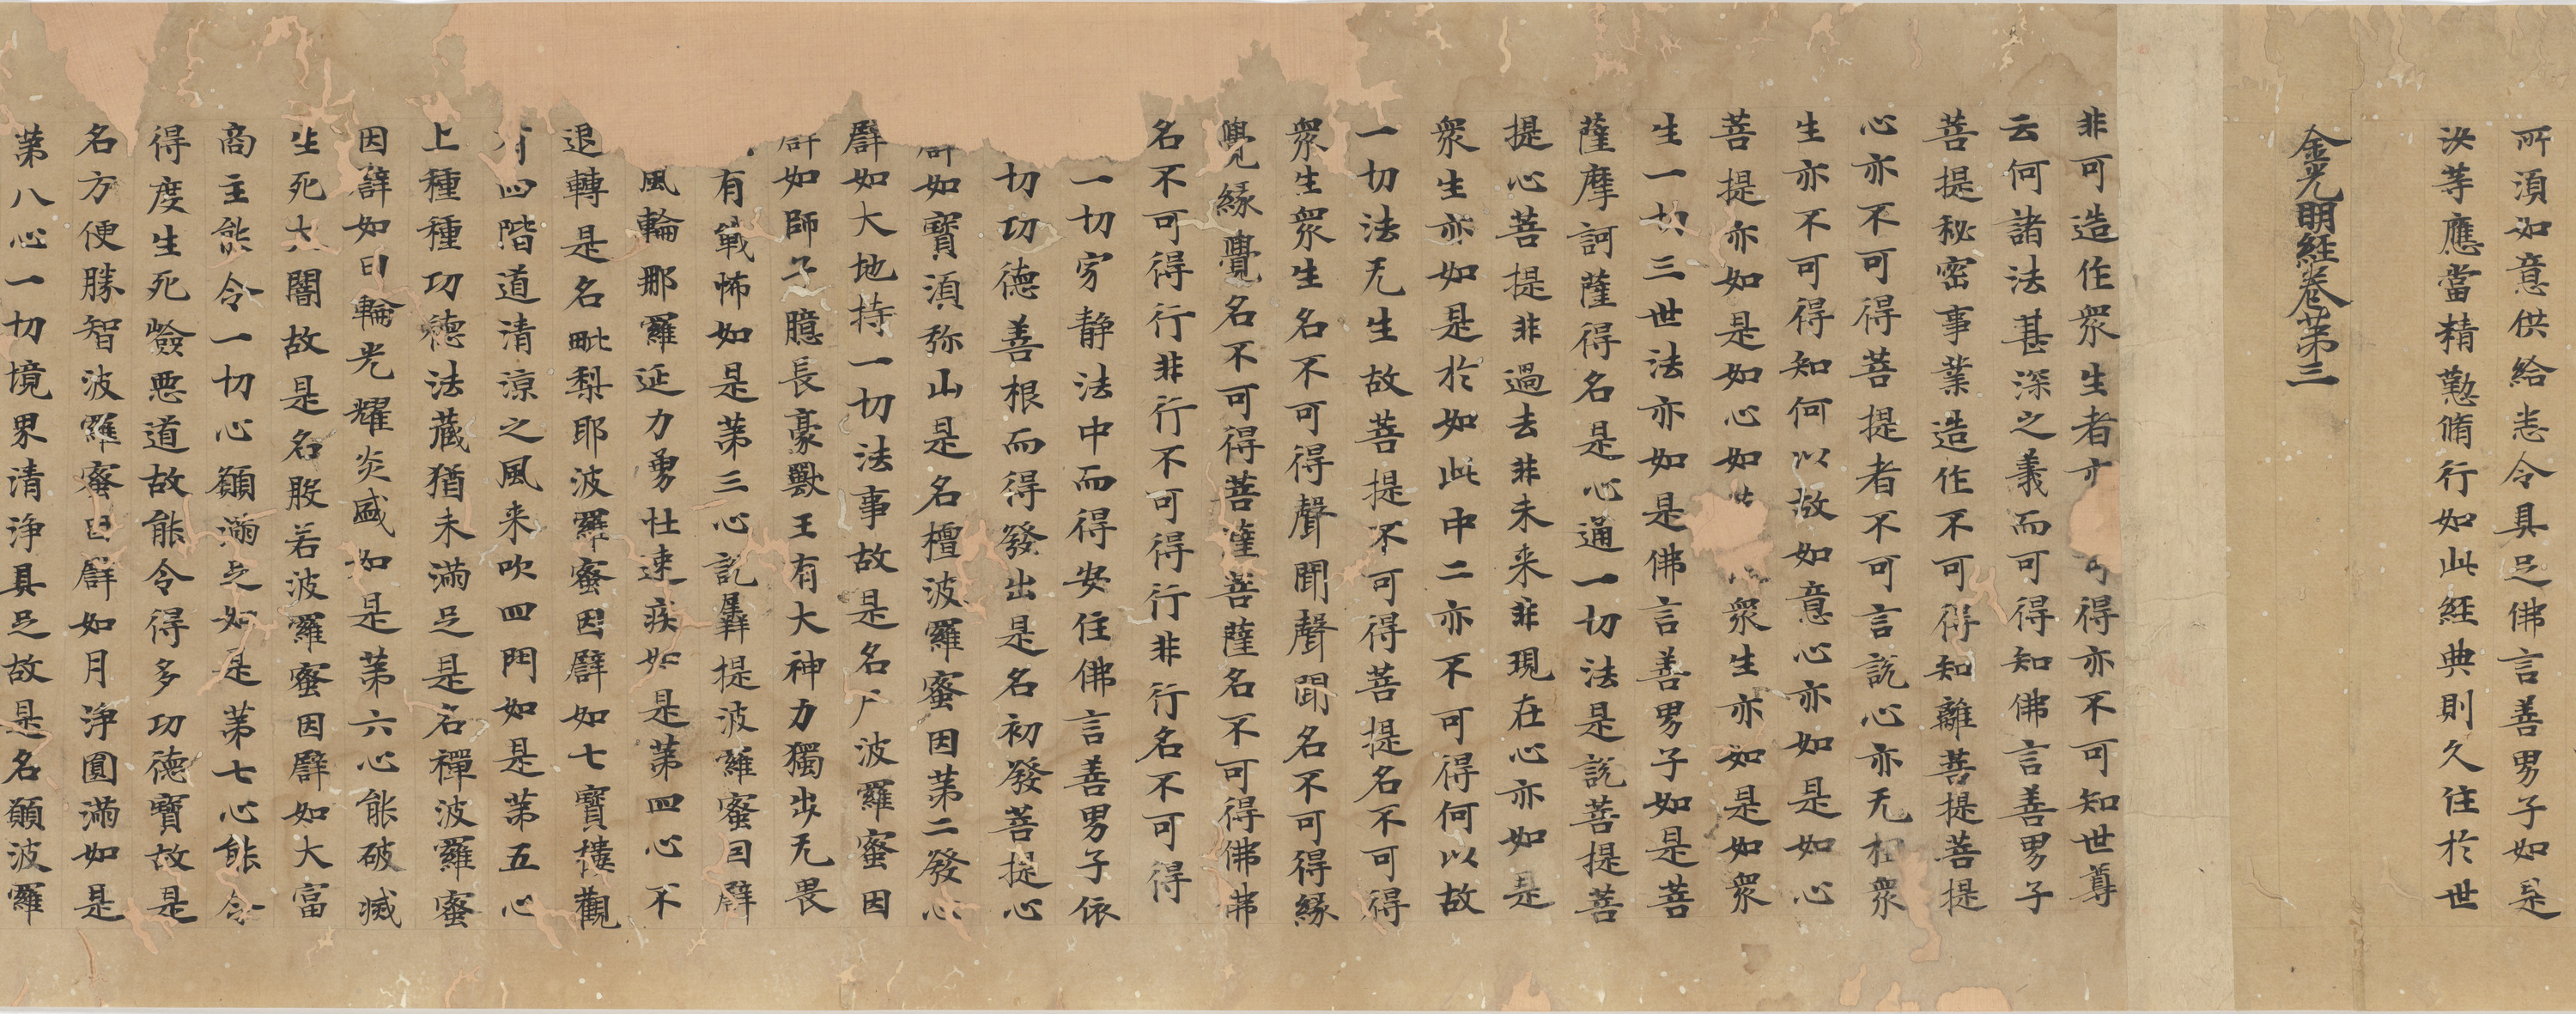 所須如意供給恙令具足佛言善男子如是
汝等應當精懃脩行如此經典則久住於世
金光明經卷第三
非可造作衆生者亦可得亦不可知世尊
云何諸法甚深之義而可得知佛言善男子
菩提秘密事業造作不可得知離菩提菩提
心亦不可得菩提者不可言說心亦无相衆
生亦不可得知何以故如意心亦如是如心
菩提亦如是如心如衆生亦如是如衆
生一切三世法亦如是佛言善男子如是菩
薩摩訶薩得名是心通一切法是說菩提菩
提心菩提非過去非未来非現在心亦如是
衆生亦如是於如此中二亦不可得何以故
一切法无生故菩提不可得菩提名不可得
衆生衆生名不可得聲聞聲聞名不可得緣
覺緣覺名不可得菩薩菩薩名不可得佛佛
名不可得行非行不可得行非行名不可得
一切寂静法中而得安住佛言善男子依
切功德善根而得發出是名初發菩提心
如寶須弥山是名檀波羅蜜因第二發心
譬如大地持一切法事故是名尸波羅蜜因
譬如師子臆長豪獸王有大神力獨步无畏
有戰怖如是第三心說羼提波羅蜜因譬
風輪那羅延力勇壮速疾如是第四心不
退轉是名毗梨耶波羅蜜因譬如七寶樓觀
有四階道清涼之風来吹四門如是第五心
上種種功德法藏猶未滿足是名禪波羅蜜
因譬如日輪光耀炎盛如是第六心能破滅
生死大闇故是名般若波羅蜜因譬如大富
商主能令一切心願滿足如是第七心能令
得度生死嶮惡道故能令得多功德寶故是
名方便勝智波羅蜜因譬如月淨圓滿如是
第八心一切境界清淨具足故是名願波羅